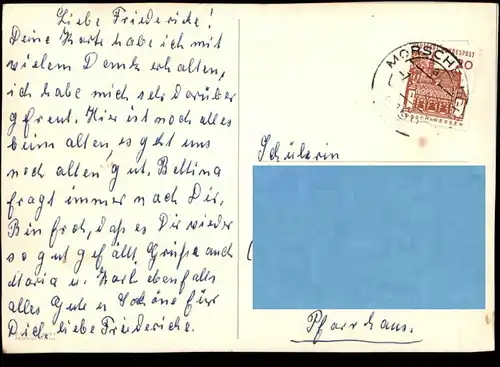 Liebe Friederike!
Deine Karte habe ich mit
vielem Dank erhalten,
ich habe mich sehr darüber
gefreut. Hier ist noch alles
beim alten, es geht uns
noch allen gut. Bettina
fragt immer nach Dir,
Bin froh, daß es Dir wieder
so gut gefällt. Grüße auch
Maria u. Karl ebenfalls
alles Gute u. Schöne für
Dich, liebe Friederike.
MORSCH
Schülerin
Pfarrhaus.